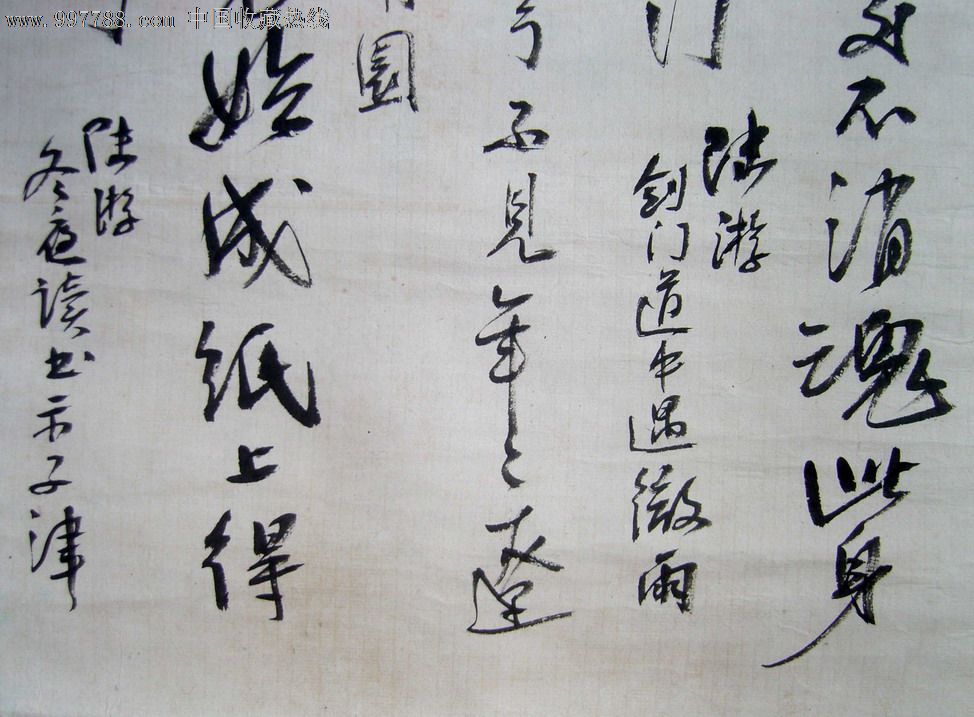 www.997788.com 中国收藏热线
处不消魂此身
门
陆游
剑门道中遇微雨
弓不見年々遼
園
始成纸上得
陆游
冬夜读书示子津